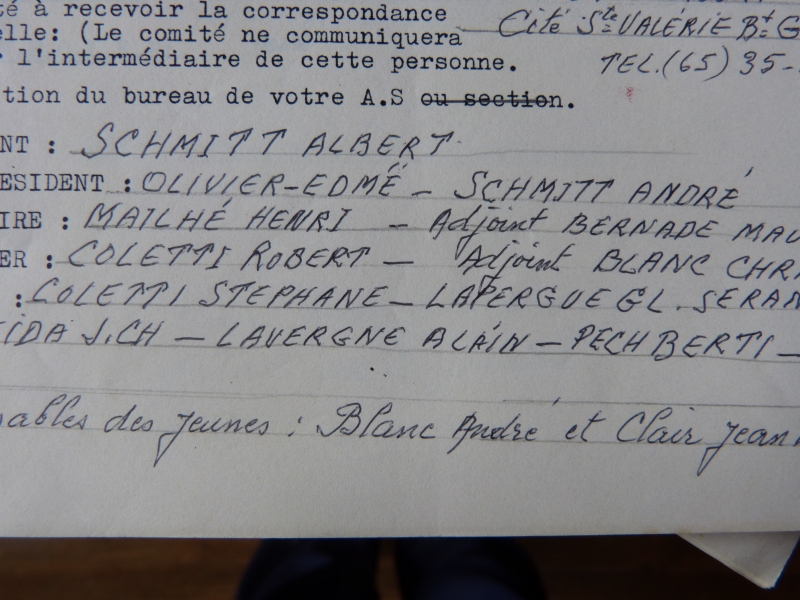 té à recevoir la correspondance
Cité Ste VALÉRIE Bt G
elle: (Le comité ne communiquera
r l'intermédiaire de cette personne.
TEL.(65) 35-
tion du bureau de votre A.S ou section.
NT : SCHMITT ALBERT
ESIDENT : OLIVIER-EDMÉ - SCHMITT ANDRÉ
IRE : MAILHÉ HENRI - Adjoint BERNADE MAU
ER : COLETTI ROBERT - Adjoint BLANC CHR
: COLETTI STEPHANE - LAPERGUE GL. SERAN
IDA J.CH - LAVERGNE ALAIN - PECHBERTI -
sables des jeunes : Blanc André et Clair Jean